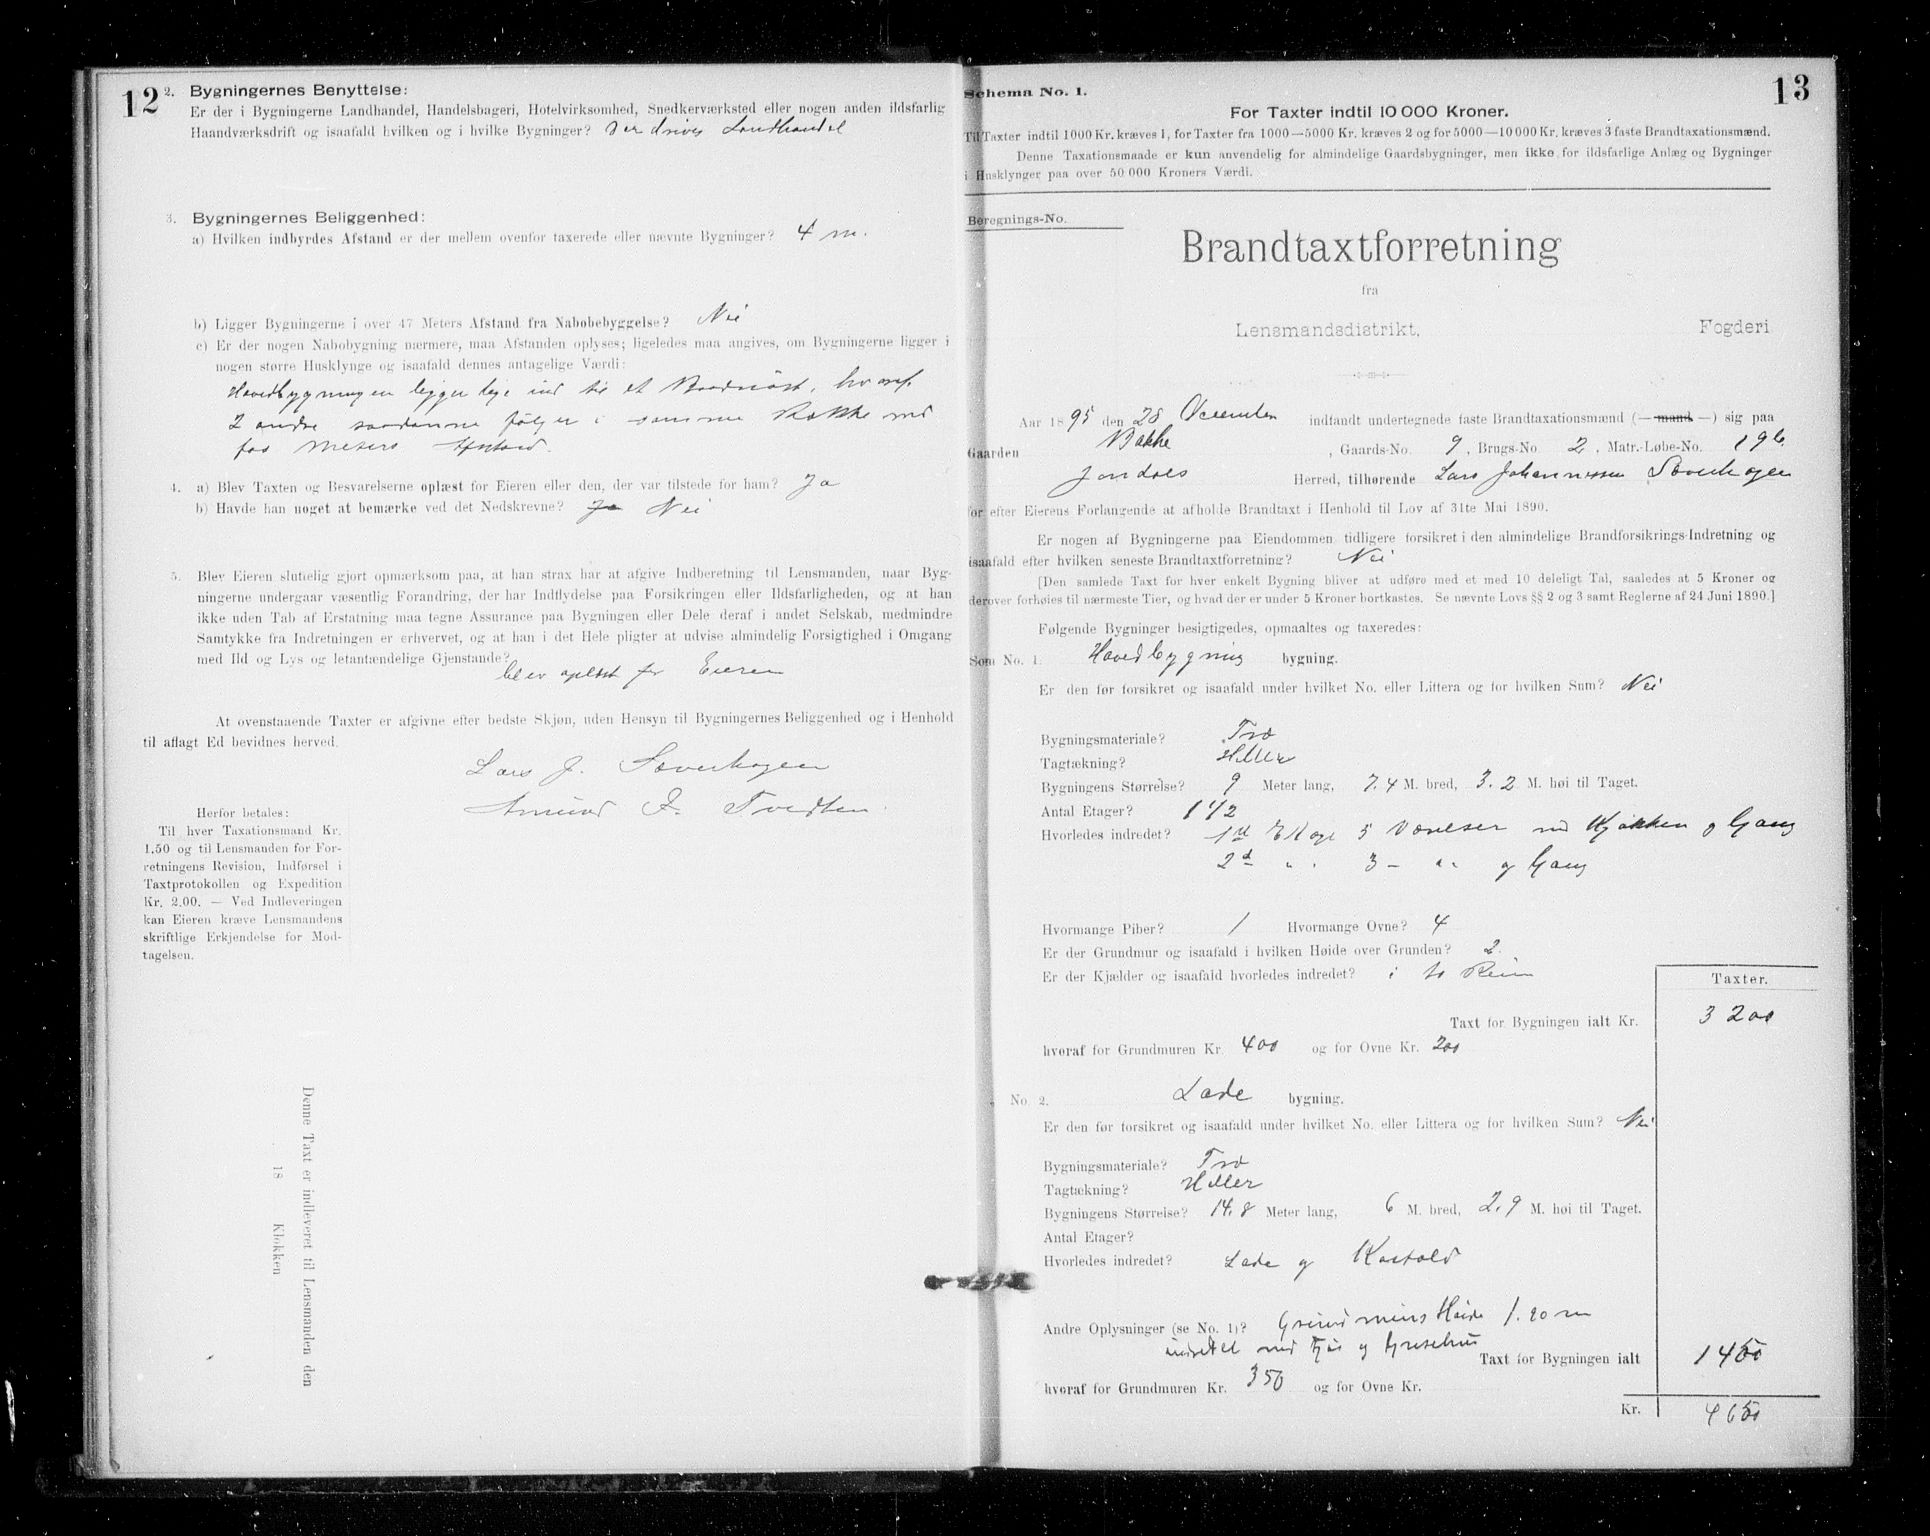 12
2. Bygningernes Benyttelse:
Er der i Bygningerne Landhandel, Handelsbageri, Hotelvirksomhed, Snedkerværksted eller nogen anden ildsfarlig
Haandværksdrift og isaafald hvilken og i hvilke Bygninger? Der drives Landhandel
3. Bygningernes Beliggenhed:
a) Hvilken indbyrdes Afstand er der mellem ovenfor taxerede eller nævnte Bygninger? 4 m.
b) Ligger Bygningerne i over 47 Meters Afstand fra Nabobebyggelse? Nei
c) Er der nogen Nabobygning nærmere, maa Afstanden oplyses; ligeledes maa angives, om Bygningerne ligger i
nogen større Husklynge og isaafald dennes antagelige Værdi:
Hovedbygningen ligger lige ind til et Baadnøst, hvoraf
2 andre saadanne følger i samme Række med
faa Meters Afstand.
4. a) Blev Taxten og Besvarelserne oplæst for Eieren eller den, der var tilstede for ham? Ja
b) Havde han noget at bemærke ved det Nedskrevne? Ja Nei
5. Blev Eieren slutielig gjort opmærksom paa, at han strax har at afgive Indberetning til Lensmanden, naar Byg-
ningerne undergaar væsentlig Forandring, der har Indflydelse paa Forsikringen eller Ildsfarligheden, og at han
ikke uden Tab af Erstatning maa tegne Assurance paa Bygningen eller Dele deraf i andet Selskab, medmindre
Samtykke fra Indretningen er erhvervet, og at han i det Hele pligter at udvise almindelig Forsigtighed i Omgang
med Ild og Lys og letantændelige Gjenstande?
blev oplæst for Eieren
At ovenstaaende Taxter er afgivne efter bedste Skjøn, uden Hensyn til Bygningernes Beliggenhed og i Henhold
til aflagt Ed bevidnes herved.
Lars J. Samerhagen
Amund A. Tvedten
Herfor betales:
Til hver Taxationsmand Kr.
1.50 og til Lensmanden for For-
retningens Revision, Indførsel i
Taxtprotokollen og Expedition
Kr. 2.00. — Ved Indleveringen
kan Eieren kræve Lensmandens
skriftlige Erkjendelse for Mod-
tagelsen.
Denne Taxt er indleveret til Lensmanden den
18 Klokken
13
Schema No. 1.
For Taxter indtil 10 000 Kroner.
Til Taxter indtil 1000 Kr. kræves 1, for Taxter fra 1000—5000 Kr. kræves 2 og for 5000—10000 Kr. kræves 3 faste Brandtaxationsmænd.
Denne Taxationsmaade er kun anvendelig for almindelige Gaardsbygninger, men ikke for ildsfarlige Anlæg og Bygninger
i Husklynger paa over 50 000 Kroners Værdi.
Beregnings-No.
Brandtaxtforretning
fra
Lensmandsdistrikt, Fogderi
Aar 1895 den 28 December indfandt undertegnede faste Brandtaxationsmænd (—mand—) sig paa
Gaarden Bakke, Gaards-No. 9, Brugs-No. 2, Matr.-Løbe-No. 196
Jondals Herred, tilhørende Lars Johannessen
for efter Eierens Forlangende at afholde Brandtaxt i Henhold til Lov af 31te Mai 1890.
Er nogen af Bygningerne paa Eiendommen tidligere forsikret i den almindelige Brandforsikrings-Indretning og
isaafald efter hvilken seneste Brandtaxtforretning? Nei
[Den samlede Taxt for hver enkelt Bygning bliver at udføre med et med 10 deleligt Tal, saaledes at 5 Kroner og
derover forhøies til nærmeste Tier, og hvad der er under 5 Kroner bortkastes. Se nævnte Lovs §§ 2 og 3 samt Reglerne af 24 Juni 1890.]
Følgende Bygninger besigtigedes, opmaaltes og taxeredes:
Som No. 1. Hovedbygning bygning.
Er den før forsikret og isaafald under hvilket No. eller Littera og for hvilken Sum? Nei
Bygningsmateriale? Træ
Tagtækning? Heller
Bygningens Størrelse? 9 Meter lang, 7.4 M. bred, 3.2 M. høi til Taget.
Antal Etager? 1 1/2
Hvorledes indredet? 1st Etage 5 Værelser med Kjøkken og Gang
2d " " 3 — " " og Gang
Hvormange Piber? 1 Hvormange Ovne? 4
Er der Grundmur og isaafald i hvilken Høide over Grunden? 2
Er der Kjælder og isaafald hvorledes indredet? i to Rum
Taxter.
Taxt for Bygningen ialt Kr. 3200
hvoraf for Grundmuren Kr. 400 og for Ovne Kr. 200
No. 2. Lade bygning.
Er den før forsikret og isaafald under hvilket No. eller Littera og for hvilken Sum? Nei
Bygningsmateriale? Træ
Tagtækning? Heller
Bygningens Størrelse? 14.8 Meter lang, 6 M. bred, 2.9 M. høi til Taget.
Antal Etager?
Hvorledes indredet? Lade og Kostald
Andre Oplysninger (se No. 1)? Grundmurens Høide 1.20 m
indredet med Fjøs og
Taxt for Bygningen ialt 1450
hvoraf for Grundmuren Kr. 350 og for Ovne Kr.
Kr. 4650